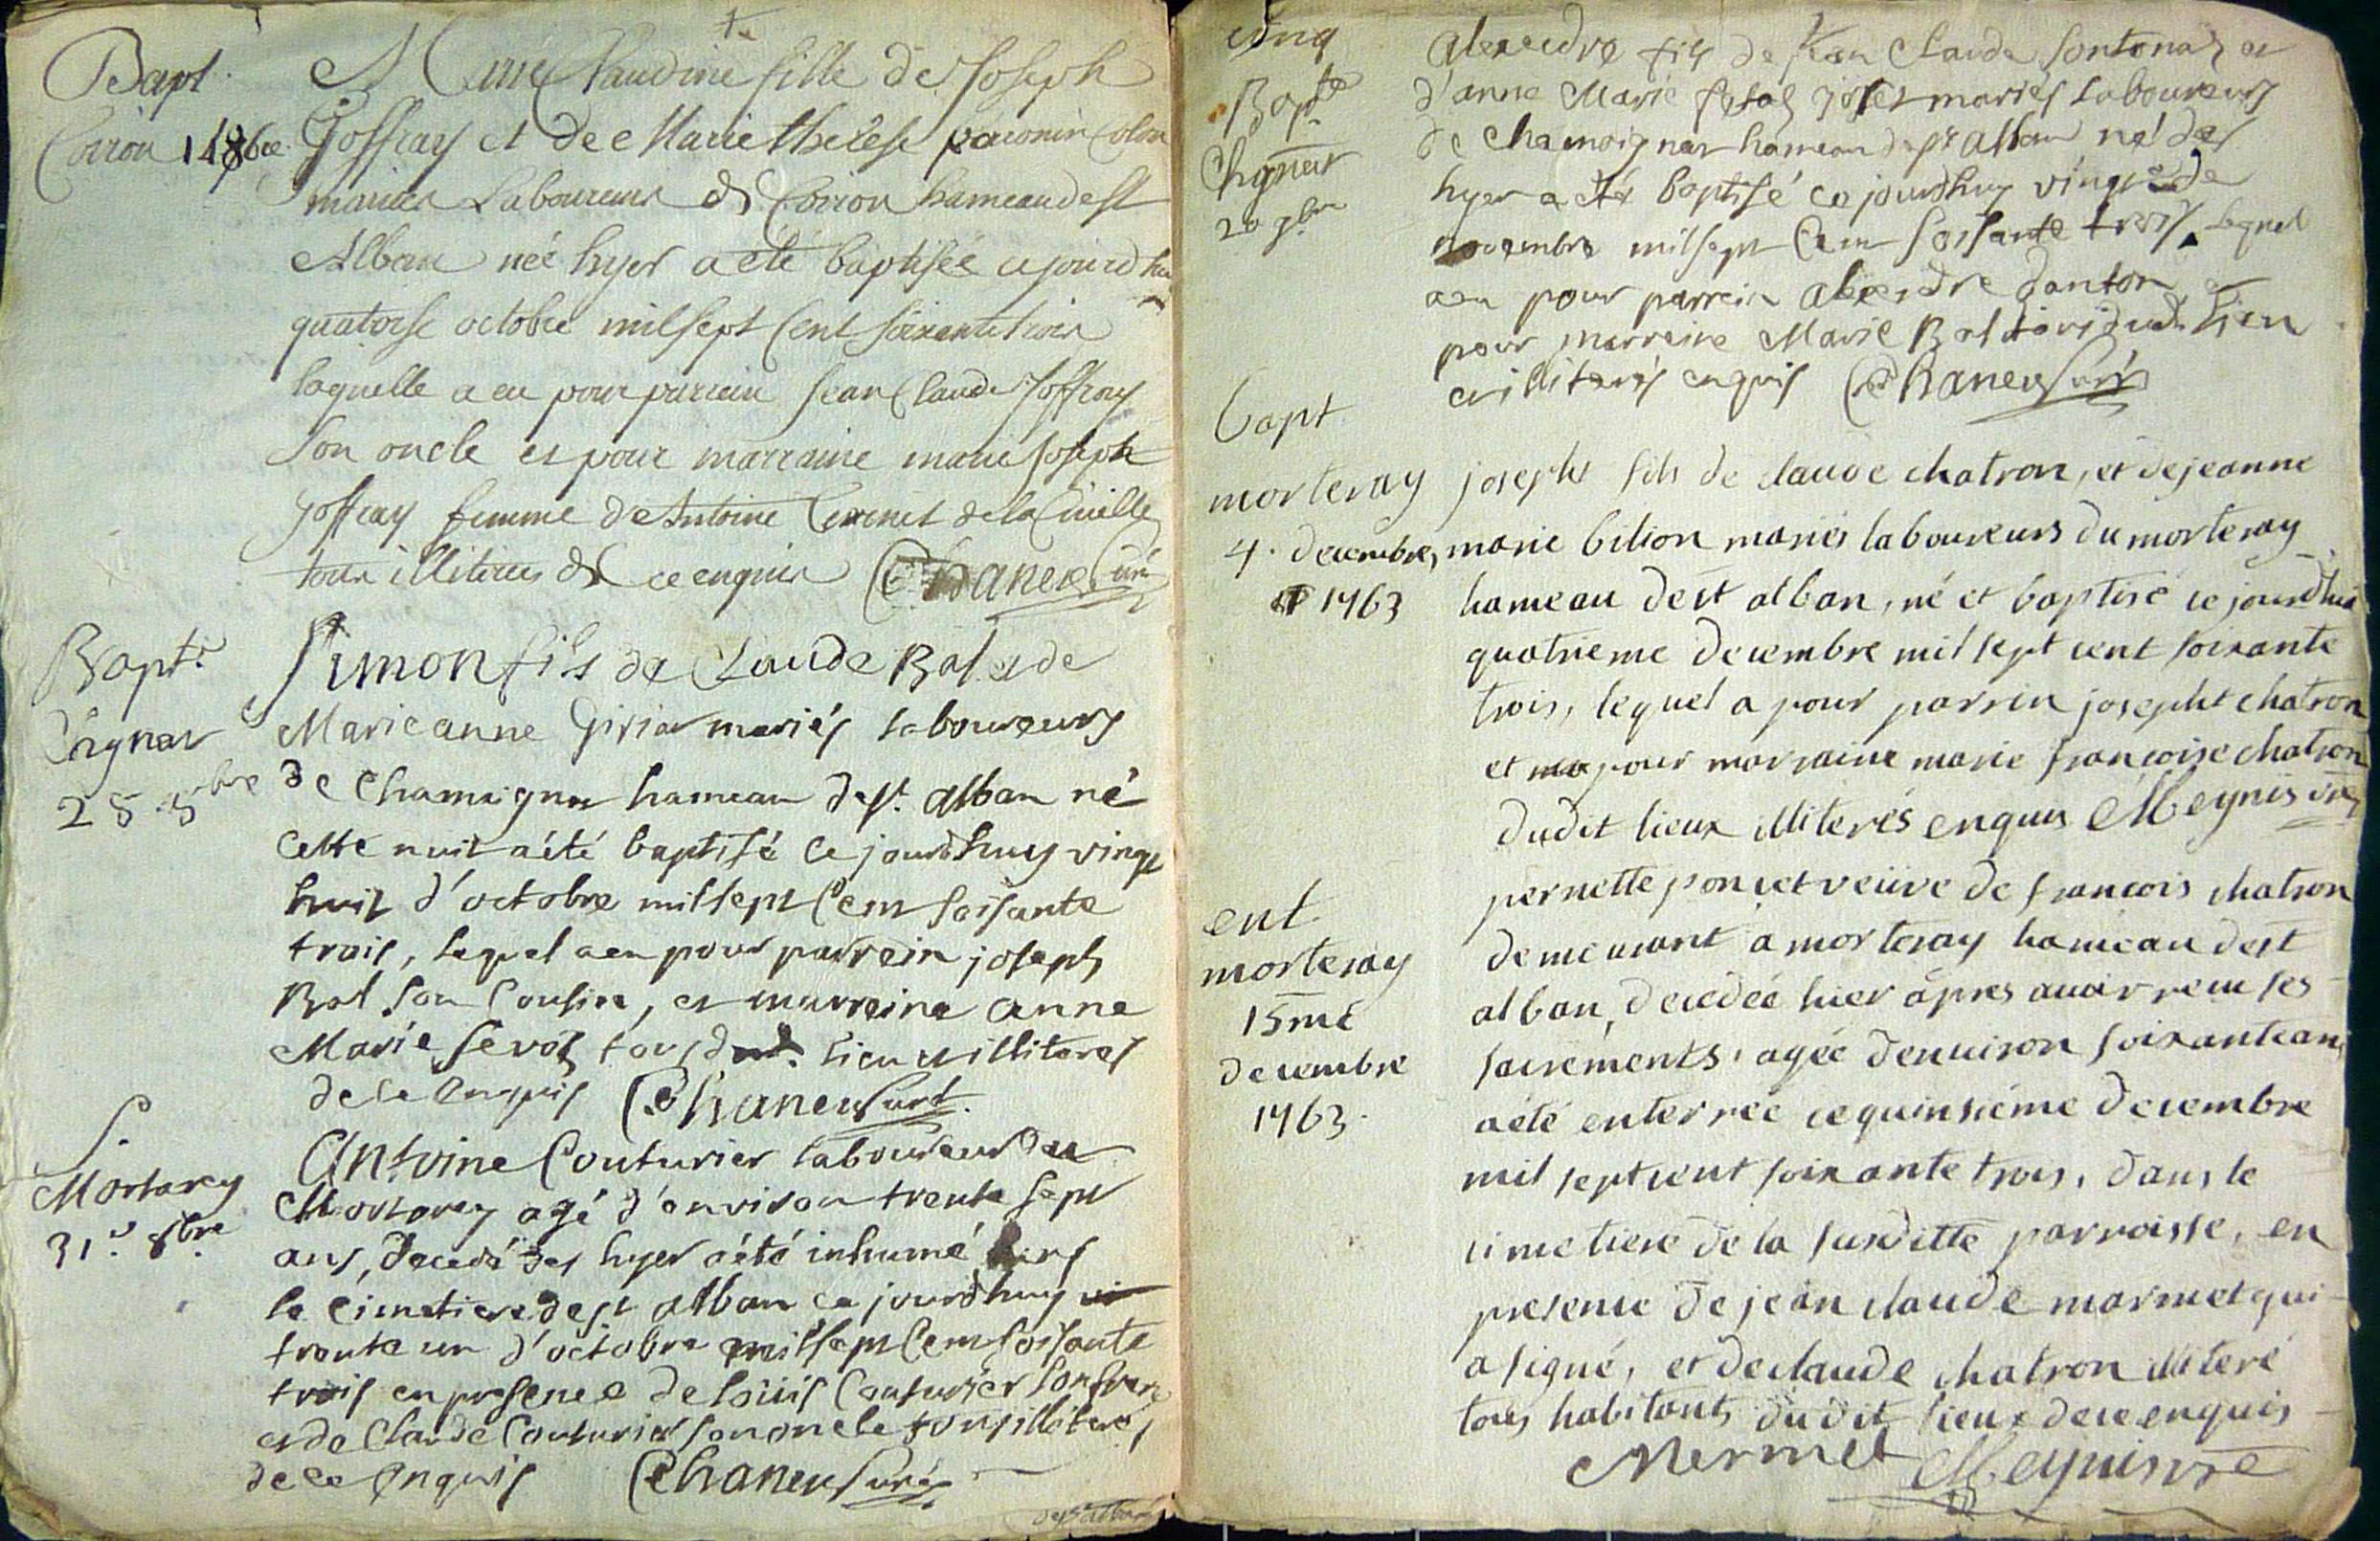 Bapt.
Coiron 14 8bre
Marie Claudine fille de Joseph
Joffray et de Marie therese Colon
mariés Laboureurs de Coiron hameau de st
Alban née hyer a été baptisée cejourdhui
quatorse octobre mil sept Cent soixante trois
laquelle a eu pour parrain Jean Claude Joffray
son oncle et pour marraine marie Joseph
Joffray femme de Antoine de la
tous illiteres de ce enquis Chaneu Curé
Bapt.
Chgnas
28 bre
Simon fils de Claude Bal et de
Marie anne Girier mariés laboureurs
de Chamaignas hameau de st. alban né
cette nuit a été baptisé ce jourdhuy vingt
huit d'octobre mil sept Cent soisante
trois, lequel a eu pour parrein joseph
Bal son Cousin, et marreine anne
Marie tous dud. lieu et illiteres
de ce Enquis Chaneu Curé
S.
Mortarey
31e. 8bre
Antoine Couturier laboureur du
Mortarey agé d'environ trente sept
ans, decedé des hyer a été inhumé dans
le Cimetiere de st alban ce jourdhuy
trente un d'octobre mil sept Cent soisante
trois en presence de loüis Couturier son frere
et de Claude Couturier son oncle tous illiteres
de ce Enquis Chaneu Curé
de st alban
cinq
Bapte
Chgnas
20 9bre
alexendre fils de jean Claude sontonas et
d'anne Marie mariés laboureurs
de Chamoignas hameau de st alban né des
hyer a été baptisé ce jourdhuy vingt de
novembre mil sept Cent soisante trois, lequel
a eu pour parrein alexendre danton et
pour marreine Marie Bal tous dud. lieu
et illiterés enquis Chaneu Curé
bapt
morteray
4. decembre,
1763
joseph fils de claude chatron, et de jeanne
marie bilion mariés laboureurs du morteray
hameau de st alban, né et baptisé ce jourdhui
quatrieme decembre mil sept cent soixante
trois, lequel a pour parrein josepht chatron
et pour marraine marie francoise chatron
dudit lieux illiterés enquis Meynis vre
ent.
morteray
15me
decembre
1763.
pernette poncet veüve de francois chatron
demeurant a morteray hameau de st
alban, decedée hier après avoir receu ses
sacrements, agée denviron soixante ans
a été enterrée ce quinsiéme decembre
mil sept cent soixante trois, dans le
cimetiere de la susditte parroisse, en
presence de jean claude marmet qui
a signé, et de claude chatron illiteré
tous habitants dudit lieux de ce enquis
Mermet Meynis vre